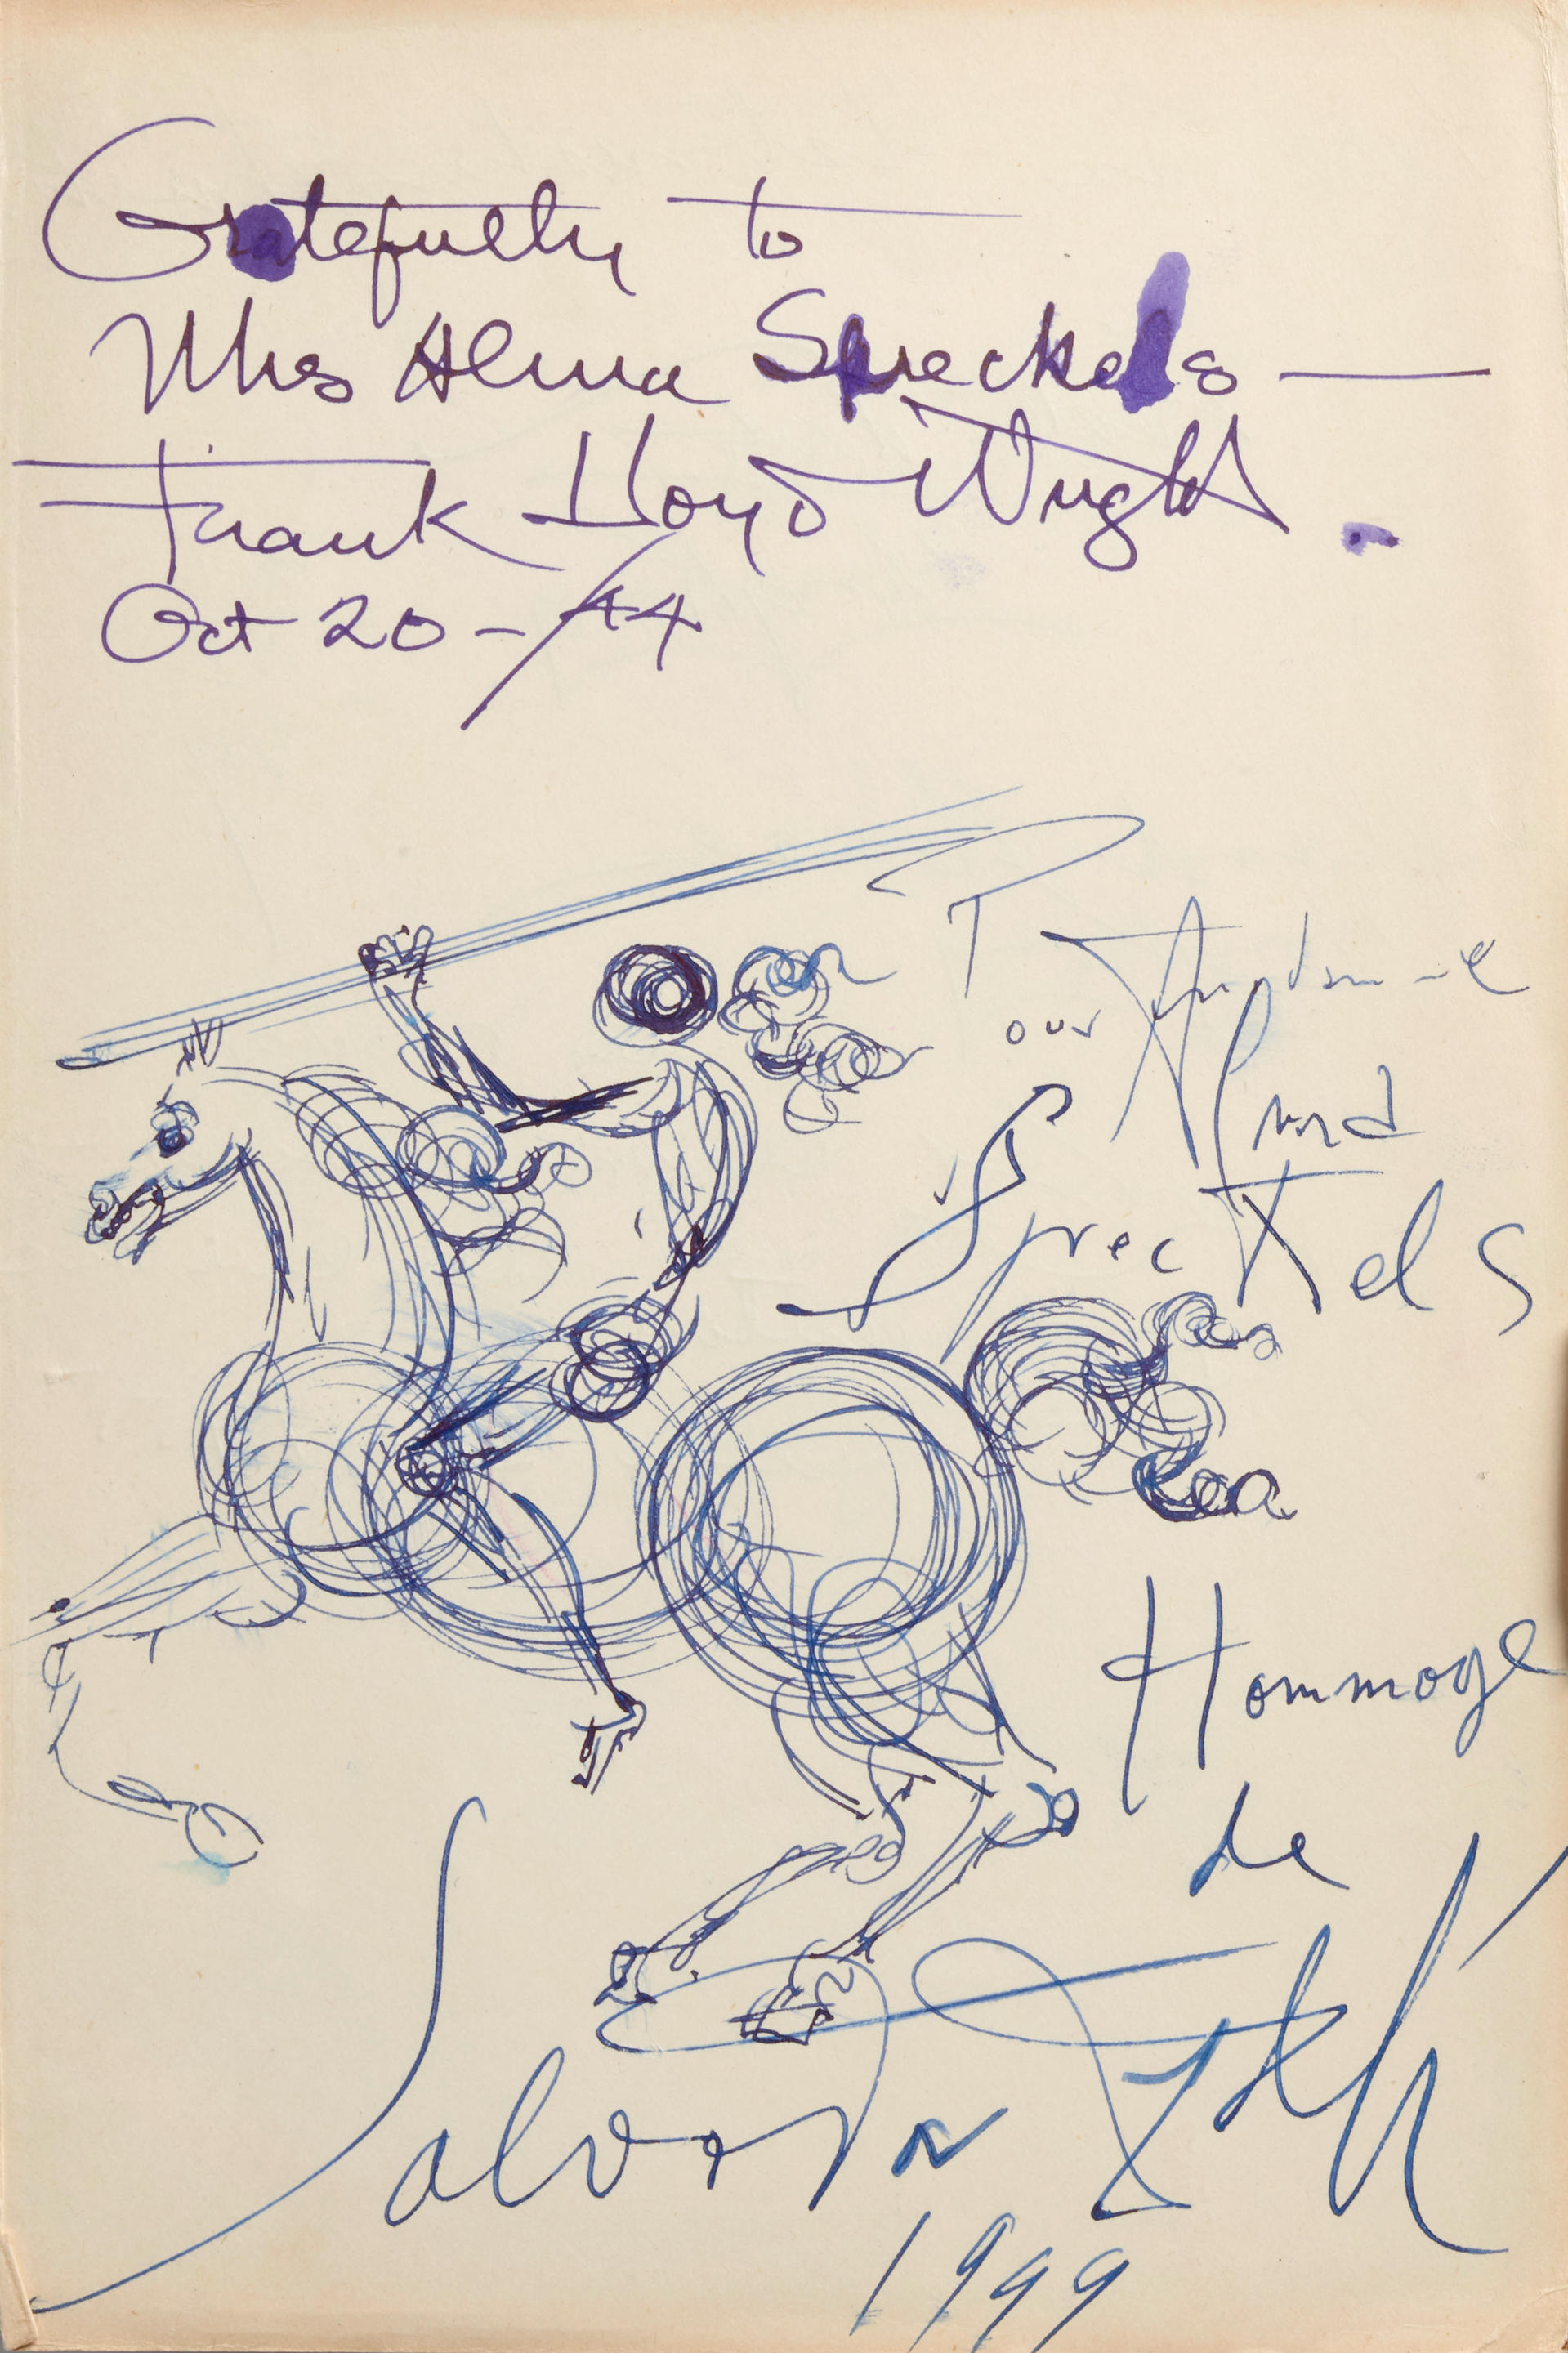 Gratefully to
Mrs Alma Spreckels —
Frank Lloyd Wright.
Oct 20 - / 44
Pour
Alma
Spreckels
Hommage
de
Salvador Dalí
1944